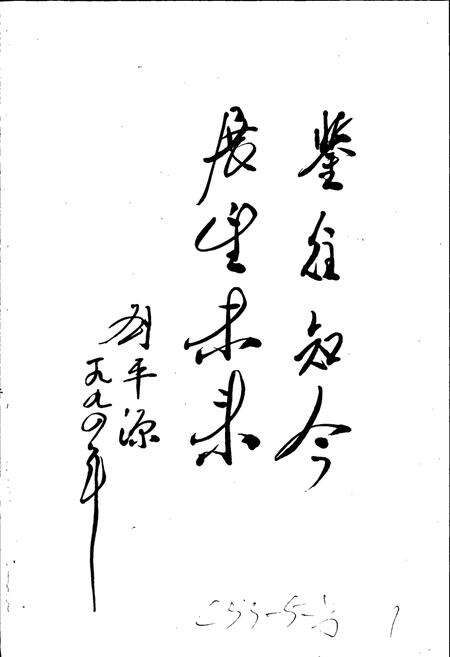 鉴往知今
展望未来
刘平源
一九九四年